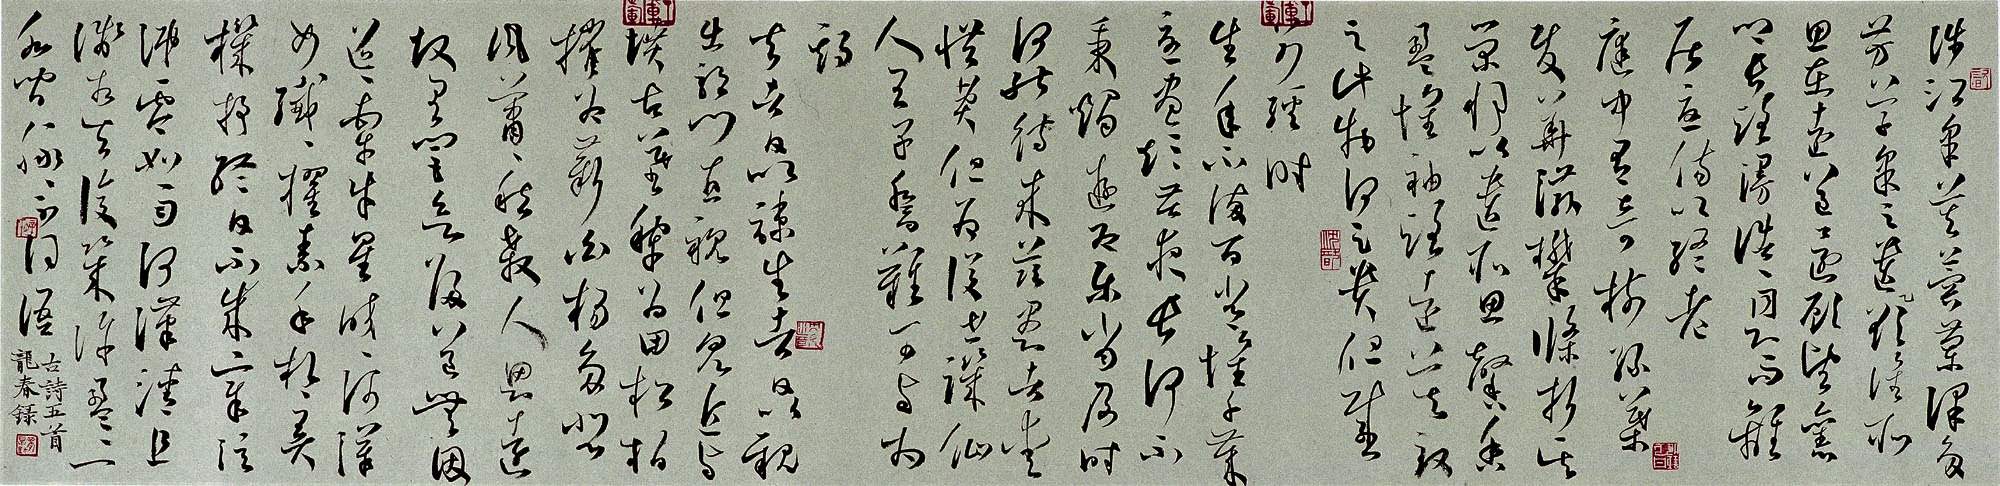 涉江采芙蓉蘭澤多
芳草采之遺欲誰所
思在遠道還顧望舊
鄉長路漫浩浩同心而離
居憂傷以終老
庭中有奇樹綠葉
發華滋攀條折其
榮將以遺所思馨香
盈懷袖路遠莫致
之此物何足貴但感
別經時
生年不滿百常懷千歲
憂晝短苦夜長何不
秉燭遊為樂當及時
何能待來茲愚者愛
惜費但為後世嗤仙
人王子喬難可與為
期
去者日以疎生者日以親
出郭門直視但見丘與
墳古墓犁為田松柏
摧為薪白楊多悲
風蕭蕭愁殺人思還
故里閭欲歸道無因
迢迢牽牛星皎皎河漢
女纖纖擢素手札札弄
機杼終日不成章泣
涕零如雨河漢清且
淺相去復幾許盈盈一
水間脈脈不得語
古詩五首
龍春錄